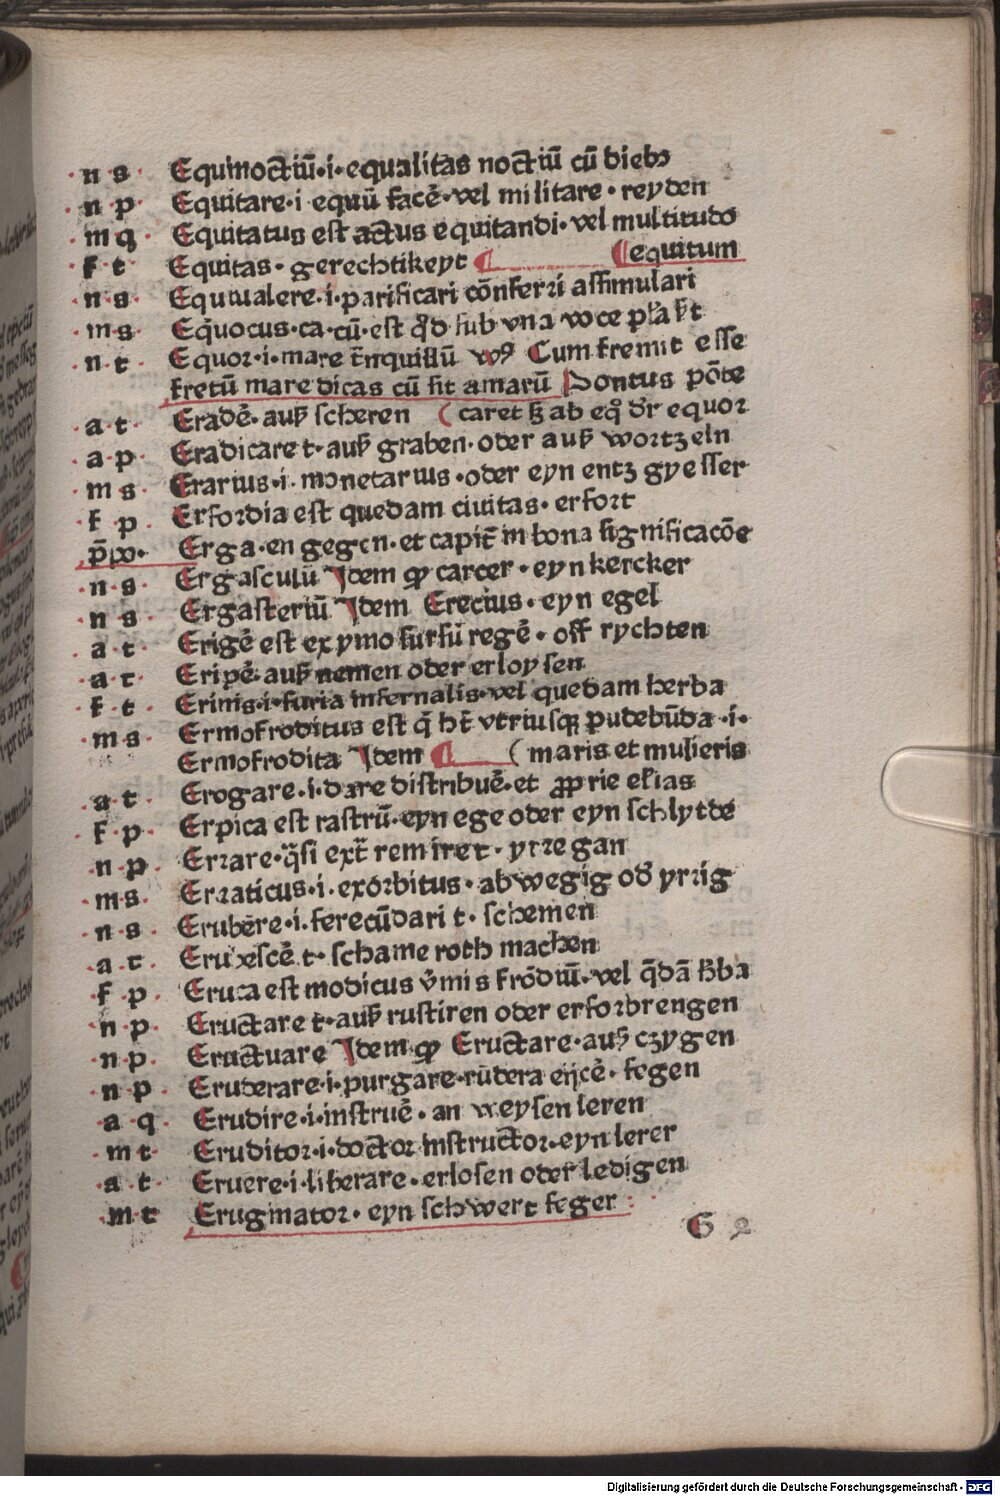 n s · Equinoctiū·i·equalitas noctiū cū diebꝫ
n p · Equitare·i equū facē·vel militare·reyden
m q · Equitatus est actus equitandi·vel multitudo
f t · Equitas·gerechtikeyt ¶ ¶equitum
n s · Equiualere·i·parificari cōnferri assimulari
m s · Eq̄uocus·ca·cū·est qd̄ sub vna voce
n t · Equor·i·mare tn̄quillū Cum fremit esse
fretū mare dicas cū sit amarū Pontus pōte
a t · Eradē·auß scheren ( caret ß ab eq̄ dr̄ equor
a p · Eradicare t·auß graben·oder auß wortzeln
m s · Erarius·i·monetarius·oder eyn entz gyesser
f p · Erfordia est quedam ciuitas·erfort
p̄po· Erga·en gegen·et capit̄ in bona significacōe
n s · Ergasculū Idem ꝙ carcer·eyn kercker
n s · Ergasteriū Idem Erecius·eyn egel
a t · Erigē est ex ymo sursū regē·off rychten
a t · Eripē·auß nemen oder erloysen
f t · Erinis·i·furia infernalis·vel quedam herba
m s · Ermofroditus est q̄ ht̄ vtriusqꝫ pudebūda·i·
Ermofrodita Idem ¶ ( maris et mulieris
a t · Erogare·i·dare distribuē·et ꝓprie elias
f p · Erpica est rastrū·eyn ege oder eyn schlytde
n p · Errare·q̄si ext̄ rem iret·yrre gan
m s · Erraticus·i·exorbitus·abwegig od̄ yrrig
n s · Erubēre·i·ferecūdari t·schemen
a t · Erubescē t·schame roth machen
f p · Eruca est modicus v̄mis frōdiū·vel q̄dā hb̄a
n p · Eructare t·auß rustiren oder erforbrengen
n p · Eructuare Idem ꝙ Eructare·auß czygen
n p · Eruderare·i·purgare·rūdera eijcē·fegen
a q · Erudire·i·instruē·an weysen leren
m t · Eruditor·i·doctor instructor·eyn lerer
a t · Eruere·i·liberare·erlosen oder ledigen
m t Eruginator·eyn schwert feger
G 2
Digitalisierung gefördert durch die Deutsche Forschungsgemeinschaft - DFG